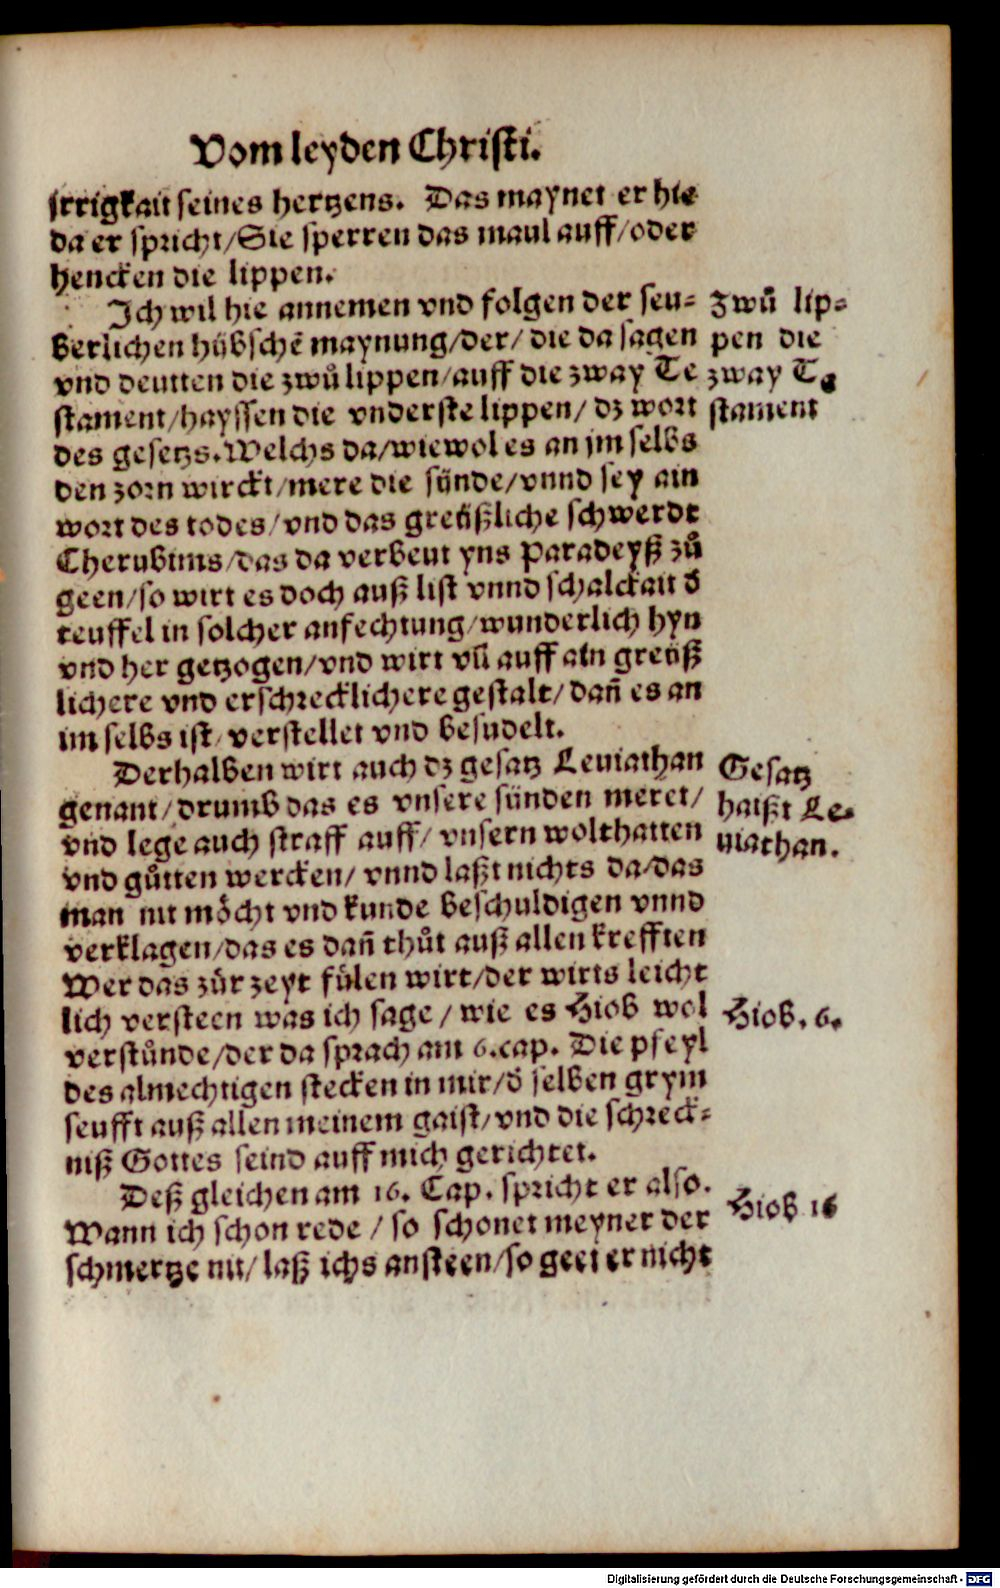 Vom leyden Christi.
jrrigkait seines hertzens. Das maynet er hie
da er spricht/Sie sperren das maul auff/oder
hencken die lippen.
Ich wil hie annemen vnd folgen der seu-
berlichen hübschē maynung/der/ die da sagen
vnd deutten die zwů lippen/auff die zway Te
stament/hayssen die vnderste lippen/ dz wort
des gesetzs. Welchs da/wiewol es an jm selbs
den zorn wirckt/mere die sünde/vnnd sey ain
wort des todes/vnd das greüßliche schwerdt
Cherubims/das da verbeut yns Paradeyß zů
geen/so wirt es doch auß list vnnd schalckait d̄
teuffel in solcher anfechtung/wunderlich hyn
vnd her getzogen/vnd wirt vil auff ain greüß
lichere vnd erschrecklichere gestalt/ dañ es an
im selbs ist/ verstellet vnd besudelt.
Derhalben wirt auch dz gesatz Leuiathan
genant/drumb das es vnsere sünden meret/
vnd lege auch straff auff/ vnsern wolthatten
vnd gůtten wercken/ vnnd laßt nichts da/das
man nit möcht vnd kunde beschuldigen vnnd
verklagen/das es dañ thůt auß allen krefften
Wer das zůr zeyt fülen wirt/der wirts leicht
lich versteen was ich sage/ wie es Hiob wol
verstünde/der da sprach am 6.cap. Die pfeyl
des almechtigen stecken in mir/d̄ selben grym
seufft auß allen meinem gaist/vnd die schreck-
niß Gottes seind auff mich gerichtet.
Deß gleichen am 16. Cap. spricht er also.
Wann ich schon rede/ so schonet meyner der
schmertze nit/ laß ichs ansteen/so geet er nicht
Zwů lip-
pen die
zway Te
stament
Gesatz
haißt Le-
uiathan.
Hiob. 6.
Hiob 16
Digitalisierung gefördert durch die Deutsche Forschungsgemeinschaft - DFG